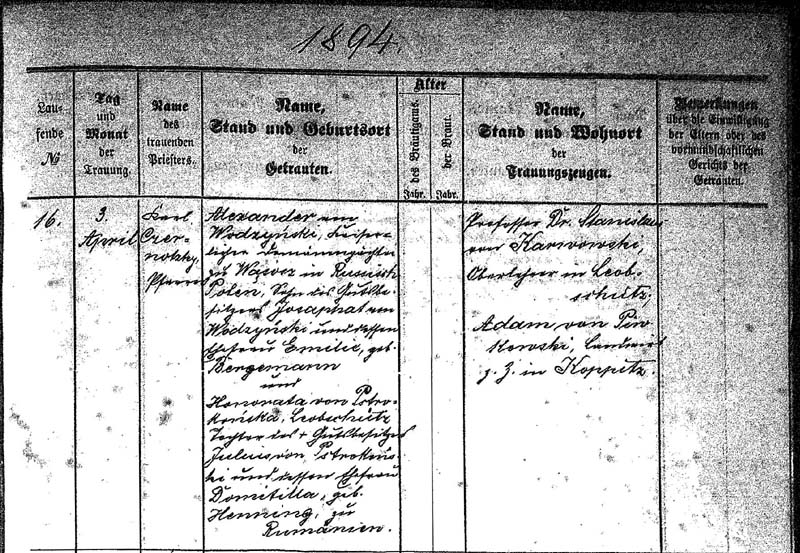 1894.
Lau-
fende
No
Tag
und
Monat
der
Trauung.
Name
des
trauenden
Priesters.
Name,
Stand und Geburtsort
der
Getrauten.
Alter
des Bräutigams.
Jahr.
der Braut.
Jahr.
Name,
Stand und Wohnort
der
Trauungszeugen.
Bemerkungen
über die Einwilligung
der Eltern oder des
vormundschaftlichen
Gerichts der
Getrauten.
16.
3.
April
Karl
Czer-
notzky,
Pfarrer
Alexander von
Wodzyński, Kaiser-
licher Domänenpächter
zu in Russisch
Polen, Sohn des Gutsbe-
sitzers Josaphat von
Wodzyński und dessen
Ehefrau Emilie, geb.
Bergemann
und
Honorata von Pstro-
końska, Leobschütz
Tochter des + Gutsbesitzers
Julius von Pstrokoński
ki und dessen Ehefrau
Domitilla, geb.
Henning, zu
Rumänien.
Professor Dr. Stanislaus
von Karwowski,
Oberlehrer in Leob-
schütz;
Adam von Piw
kowski, Landwirt
z. Z. in Koppitz.